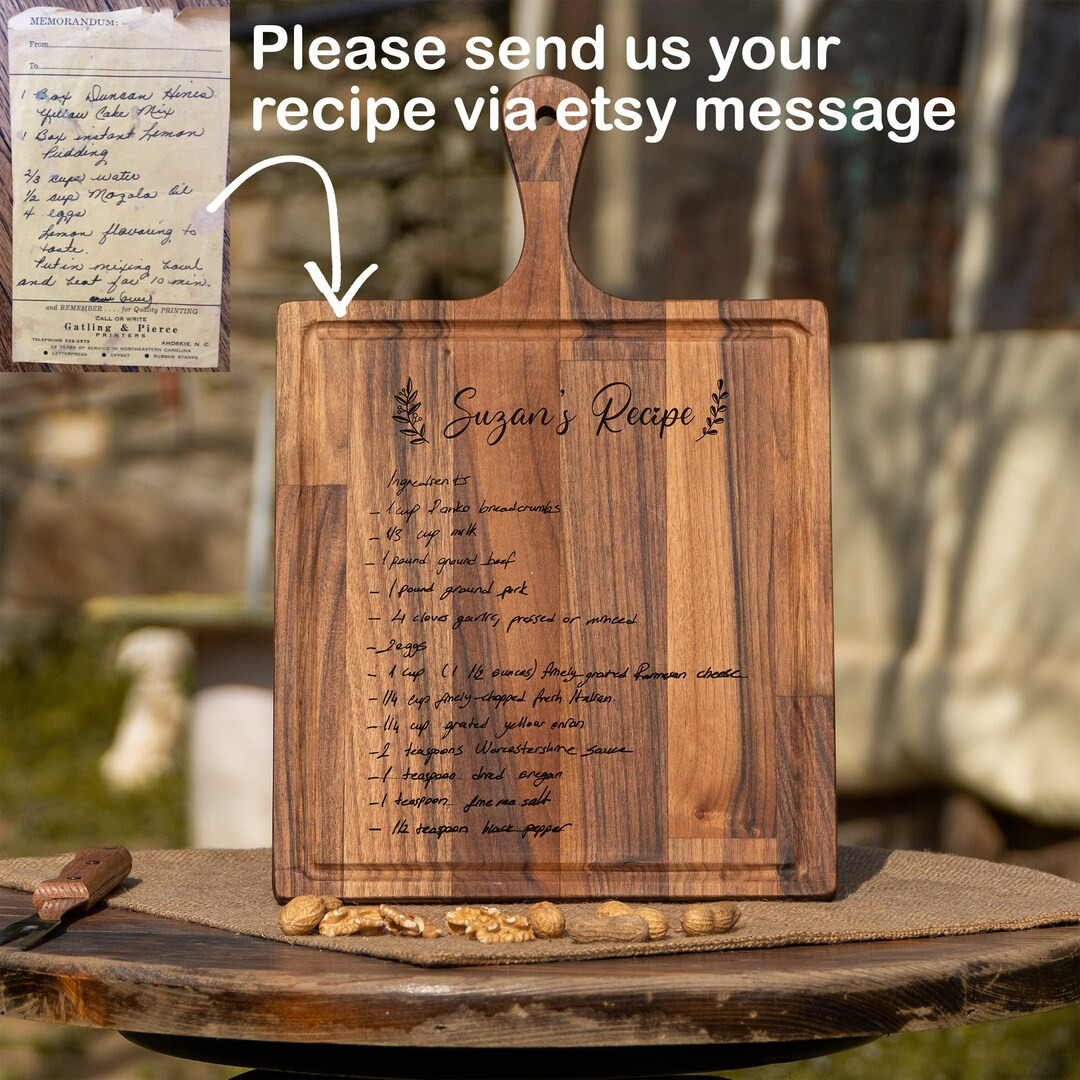 MEMORANDUM:
From
To
1 Box Duncan Hines
Yellow Cake Mix
1 Box instant Lemon
Pudding
2/3 cups water
1/2 cup Mazola Oil
4 eggs
Lemon flavoring to
taste.
Put in mixing bowl
and beat for 10 min.
and REMEMBER .... for Quality PRINTING
CALL OR WRITE
Gatling & Pierce
PRINTERS
TELEPHONE 332-2579
AHOSKIE, N. C.
22 YEARS OF SERVICE IN NORTHEASTERN CAROLINA
● LETTERPRESS ● OFFSET ● RUBBER STAMPS
Please send us your
recipe via etsy message
Suzan's Recipe
Ingredients
- 1 cup Panko breadcrumbs
- 1/3 cup milk
- 1 pound ground beef
- 1 pound ground pork
- 4 cloves garlic, pressed or minced
- 2 eggs
- 1 cup (1 1/2 ounces) finely grated Parmesan cheese
- 1/4 cup finely-chopped fresh Italian.
- 1/4 cup grated yellow onion
- 2 teaspoons Worcestershire sauce
- 1 teaspoon dried oregan
- 1 teaspoon fine sea salt
- 1/2 teaspoon black pepper